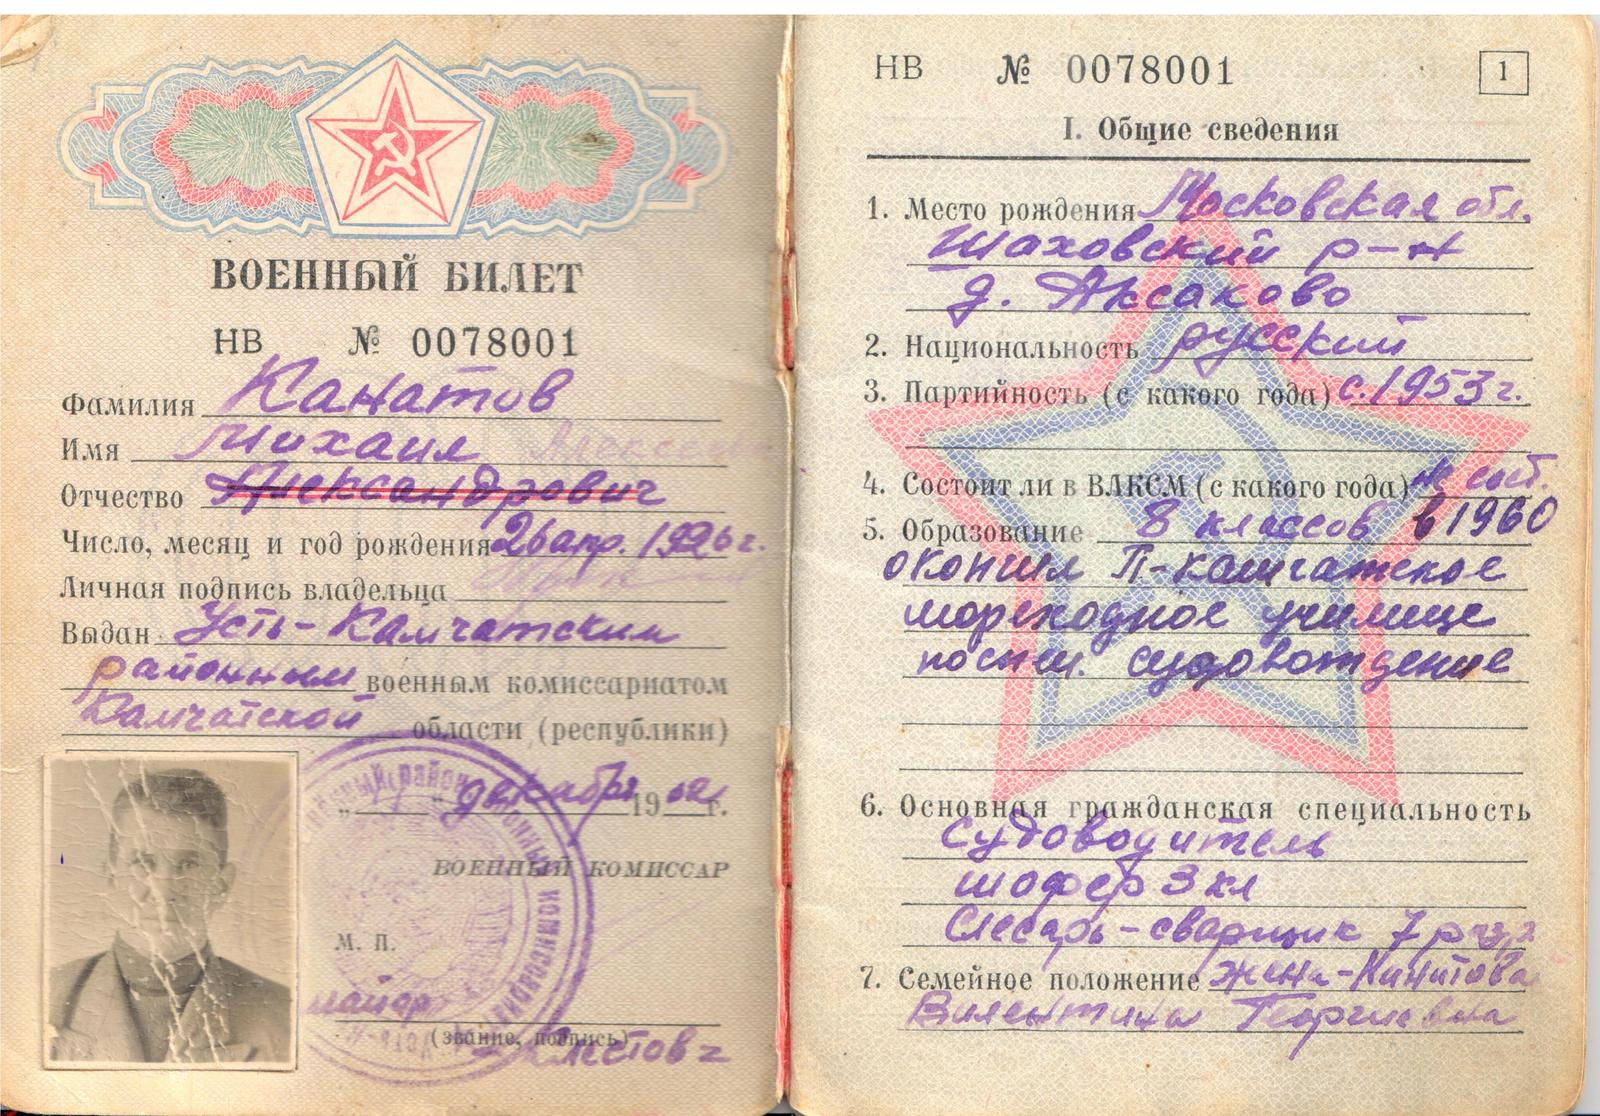 ВОЕННЫЙ БИЛЕТ
НВ № 0078001
Фамилия Канатов
Имя Михаил
Отчество Александрович
Число, месяц и год рождения 26 апр. 1926 г.
Личная подпись владельца
Выдан Усть-Камчатским
районным военным комиссариатом
Камчатской области (республики)
„ “ декабря 19 г.
ВОЕННЫЙ КОМИССАР
М. П.
майор
(звание, подпись)
НВ № 0078001
1
I. Общие сведения
1. Место рождения Московская обл.
Шаховский р-н
д. Аксаково
2. Национальность русский
3. Партийность (с какого года) с 1953 г.
4. Состоит ли в ВЛКСМ (с какого года) не сост.
5. Образование 8 классов в 1960
окончил П-Камчатское
мореходное училище
судовождение
6. Основная гражданская специальность
судоводитель
шофер 3 кл
Слесарь-сварщик 7 разр.
7. Семейное положение жена - Канатова
Валентина Георгиевна